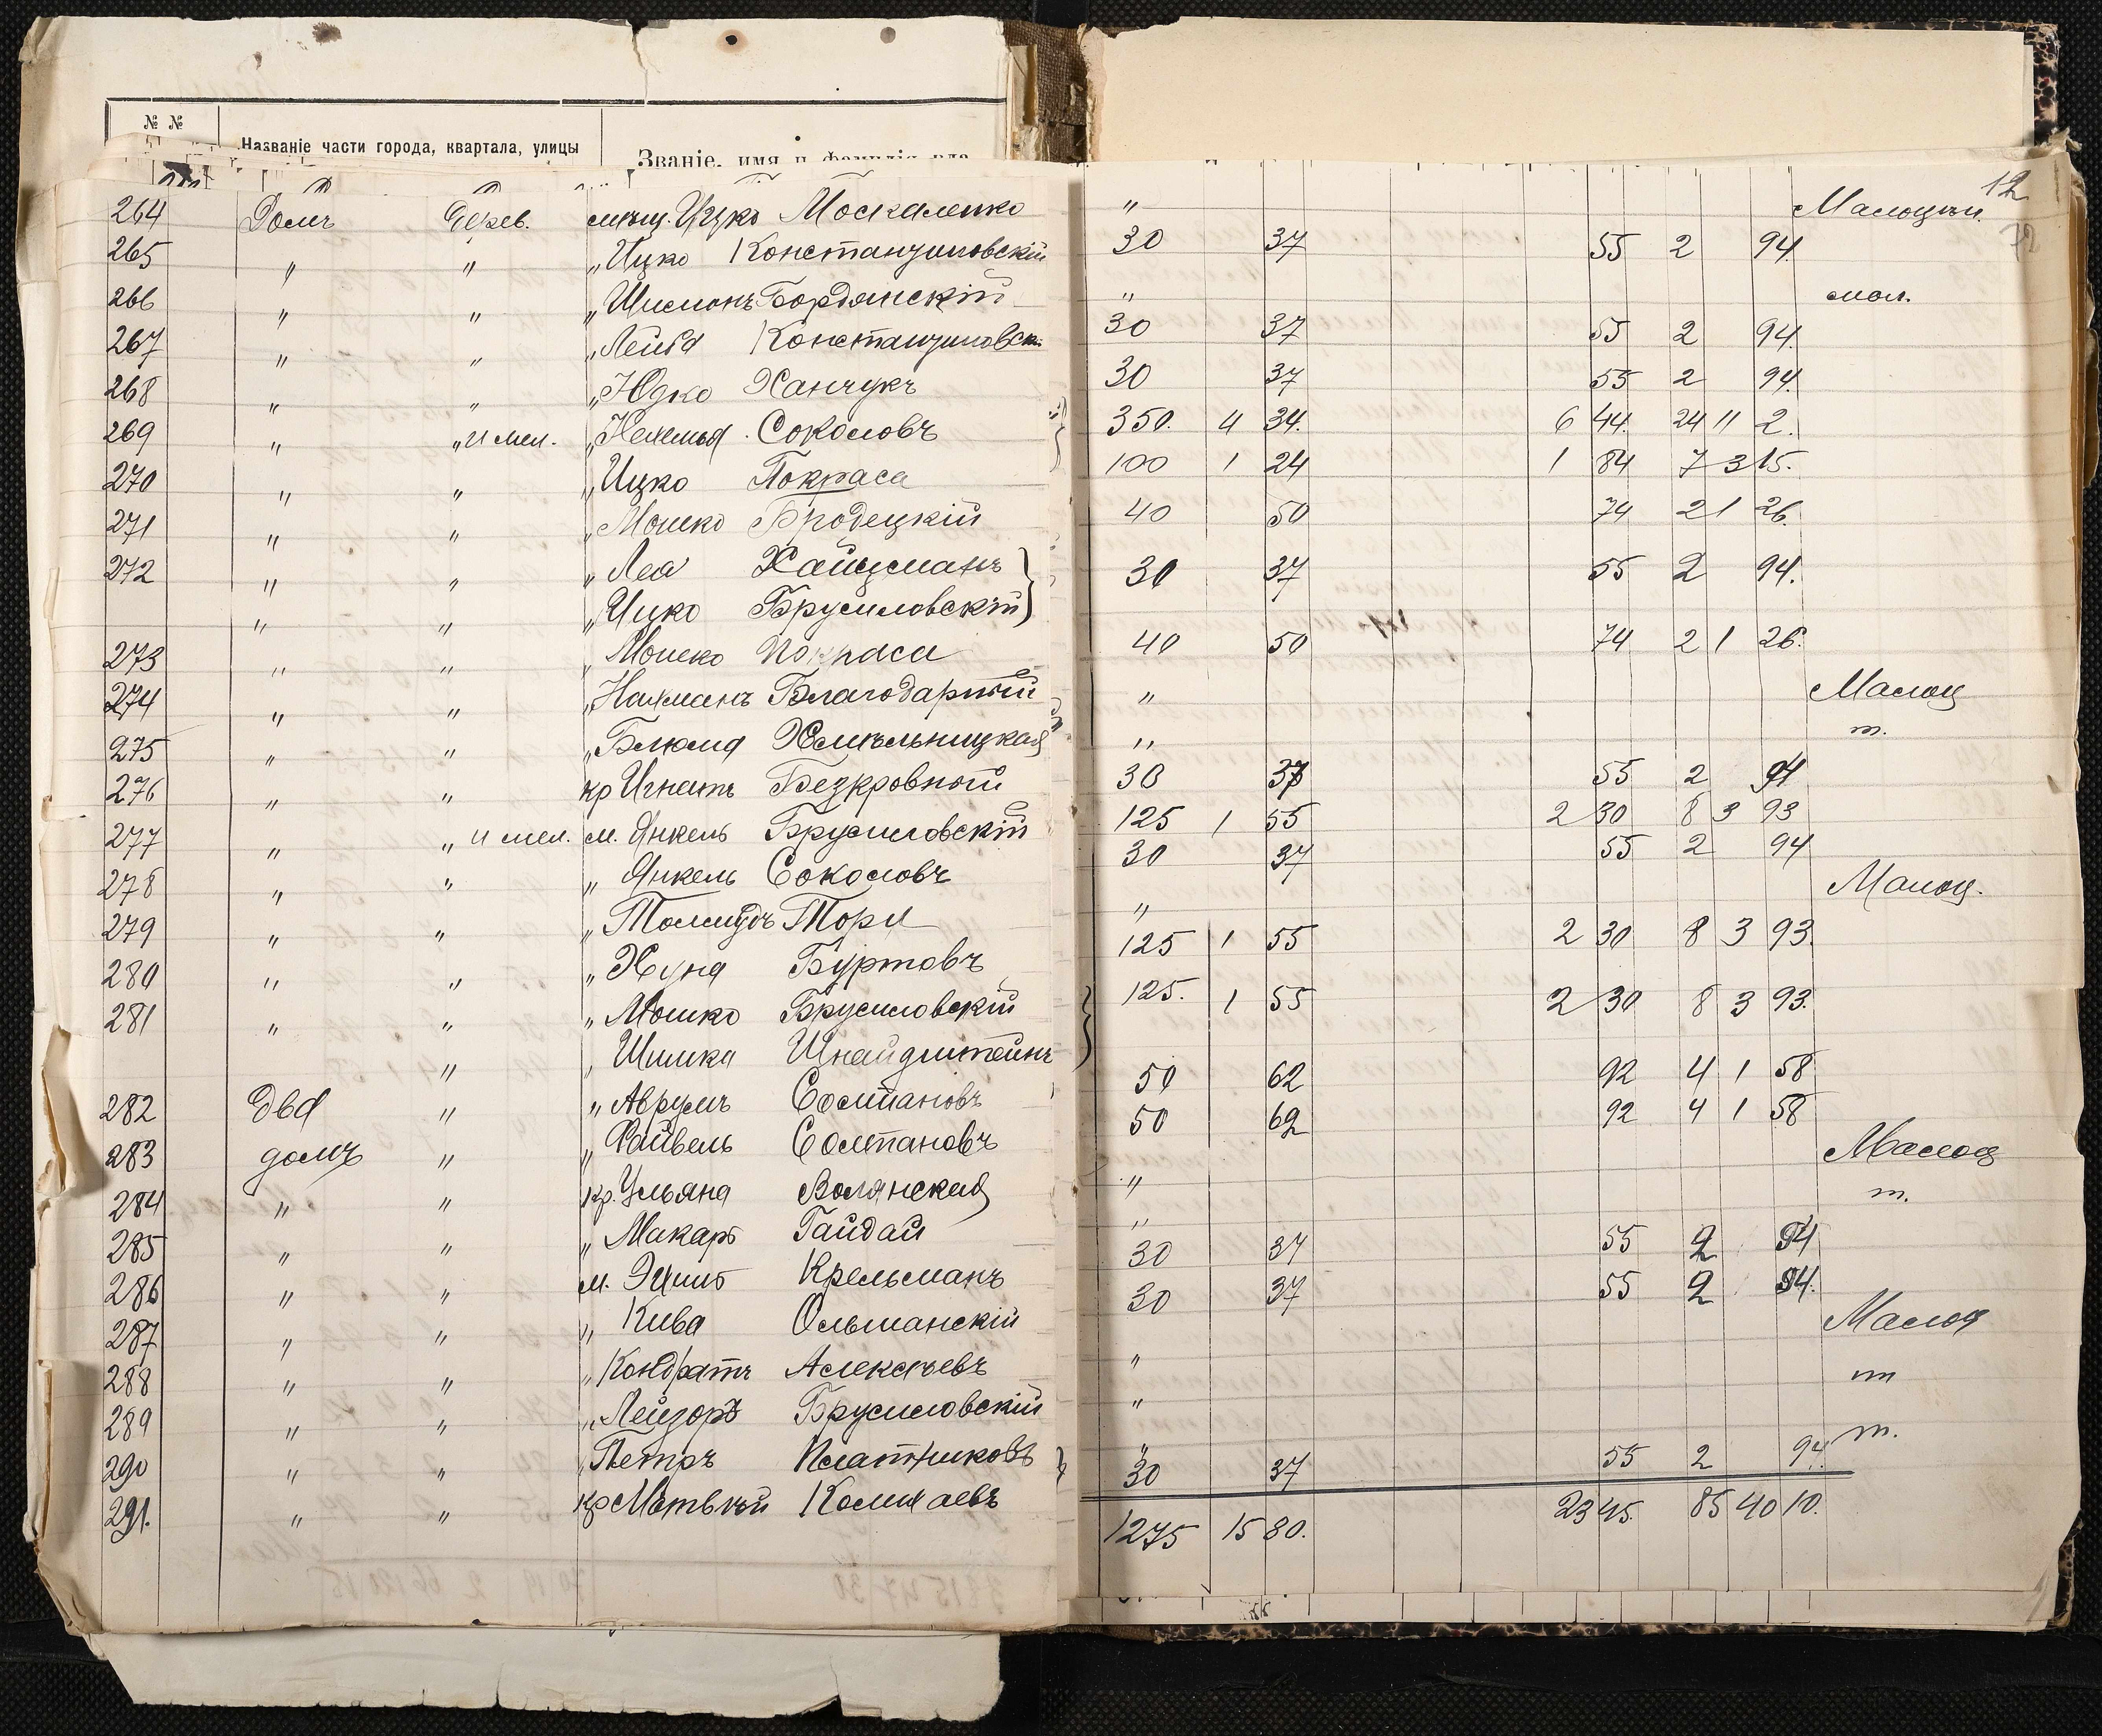 № №
Названіе части города, квартала, улицы
Званіе, имя и фамилія вла
12
72
264 Домъ Дерев. мѣщ. Ицко Москаленко " Малоцѣн.
265 " " " Ицко Константиновскій 30 37 55 2 94.
266 " " " Шимонъ Бордянскій " мал.
267 " " " Лейба Константиновск. 30 37 55 2 94.
268 " " " Юдко Ханчукъ 30 37 55 2 94.
269 " " и мел. " Нехемья Соколовъ 350. 4 34. 6 44. 24 11 2.
270 " " " Ицко Покраса 100 1 24 1 84 7 3 15.
271 " " " Мошко Бродецкій 40 50 74 2 1 26.
272 " " " Леа Хайцманъ 30 37 55 2 94.
" " " Ицко Брусиловскій
273 " " " Мошко Покраса 40 50 74 2 1 26.
274 " " " Нахманъ Благодарный " Малоц
275 " " " Блюма Хмѣльницкая " т.
276 " " кр Игнатъ Безкровной 30 37 55 2 94
277 " " и мел. м. Янкель Брусиловскій 125 1 55 2 30 8 3 93
278 " " " Янкель Соколовъ 30 37 55 2 94
279 " " " Талмудъ Тора " Малоц.
280 " " " Хуна Буртовъ 125 1 55 2 30 8 3 93.
281 " " " Мошко Брусиловскій 125. 1 55 2 30 8 3 93.
" " Шимка Шнайдштейнъ
282 два " " Аврумъ Солтановъ 50 62 92 4 1 58
283 домъ " " Файвель Солтановъ 50 62 92 4 1 58
284 " " кр. Ульяна Волянская " Малоц
285 " " " Макаръ Гайдай " т.
286 " " м. Крельманъ 30 37 55 2 94
287 " " " Кива Ольшанскій 30 37 55 2 94.
288 " " " Кондратъ Алексѣевъ " Малоц
289 " " " Лейзоръ Брусиловскій " т
290 " " " Петръ Платниковъ " т.
291. " " кр Матвѣй 30 37 55 2 94.
1275 15 80. 23 45. 85 40 10.